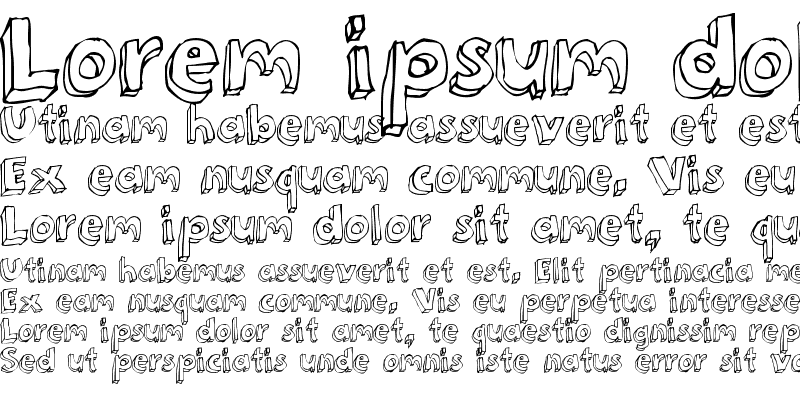 Lorem ipsum dol
Utinam habemus assueverit et est
Ex eam nusquam commune, Vis eu
Lorem ipsum dolor sit amet, te qu
Utinam habemus assueverit et est, Elit pertinacia me
Ex eam nusquam commune, Vis eu perpetua interesse
Lorem ipsum dolor sit amet, te quaestio dignissim rep
Sed ut perspiciatis unde omnis iste natus error sit vo